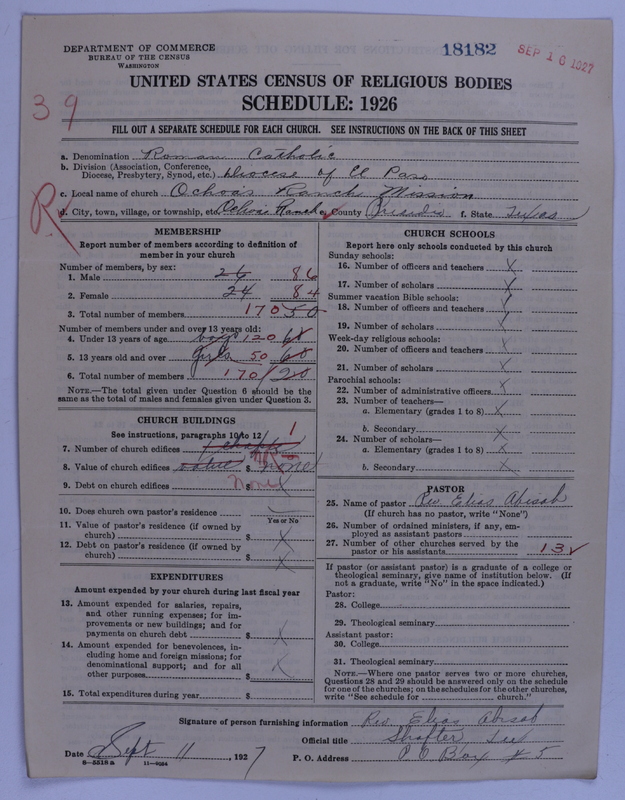 DEPARTMENT OF COMMERCE
BUREAU OF THE CENSUS
WASHINGTON
18182
SEP 16 1927
39
UNITED STATES CENSUS OF RELIGIOUS BODIES
SCHEDULE: 1926
FILL OUT A SEPARATE SCHEDULE FOR EACH CHURCH. SEE INSTRUCTIONS ON THE BACK OF THIS SHEET
a. Denomination Roman Catholic
b. Division (Association, Conference,
Diocese, Presbytery, Synod, etc.) Diocese of El Paso
c. Local name of church Ochoas Ranch Mission
R
d. City, town, village, or township, etc. Ranch e. County Presidio f. State Texas
MEMBERSHIP
Report number of members according to definition of
member in your church
Number of members, by sex:
1. Male 26 86
2. Female 24 84
3. Total number of members 170 50
Number of members under and over 13 years old:
4. Under 13 years of age boys 120 60
5. 13 years old and over girls 50 60
6. Total number of members 170/20
NOTE.—The total given under Question 6 should be the
same as the total of males and females given under Question 3.
CHURCH BUILDINGS
See instructions, paragraphs 10 to 12
7. Number of church edifices 1
8. Value of church edifices value $ none
9. Debt on church edifices none $ X
10. Does church own pastor's residence
Yes or No
11. Value of pastor's residence (if owned by
church) $ X
12. Debt on pastor's residence (if owned by
church) $ X
EXPENDITURES
Amount expended by your church during last fiscal year
13. Amount expended for salaries, repairs,
and other running expenses; for im-
provements or new buildings; and for
payments on church debt $ X
14. Amount expended for benevolences, in-
cluding home and foreign missions; for
denominational support; and for all
other purposes $ X
15. Total expenditures during year $
CHURCH SCHOOLS
Report here only schools conducted by this church
Sunday schools:
16. Number of officers and teachers X
17. Number of scholars X
Summer vacation Bible schools:
18. Number of officers and teachers X
19. Number of scholars X
Week-day religious schools:
20. Number of officers and teachers X
21. Number of scholars X
Parochial schools:
22. Number of administrative officers X
23. Number of teachers—
a. Elementary (grades 1 to 8) X
b. Secondary X
24. Number of scholars—
a. Elementary (grades 1 to 8) X
b. Secondary X
PASTOR
25. Name of pastor Rev. Elias Abisab
(If church has no pastor, write "None")
26. Number of ordained ministers, if any, em-
ployed as assistant pastors
27. Number of other churches served by the
pastor or his assistants 13
If pastor (or assistant pastor) is a graduate of a college or
theological seminary, give name of institution below. (If
not a graduate, write "No" in the space indicated.)
Pastor:
28. College
29. Theological seminary
Assistant pastor:
30. College
31. Theological seminary
NOTE.—Where one pastor serves two or more churches,
Questions 28 and 29 should be answered only on the schedule
for one of the churches; on the schedules for the other churches,
write "See schedule for church."
Signature of person furnishing information Rev. Elias Abisab
Official title Shafter Tex
Date Sept 11, 1927
P. O. Address P O Box # 5
8—5518a 11—9264